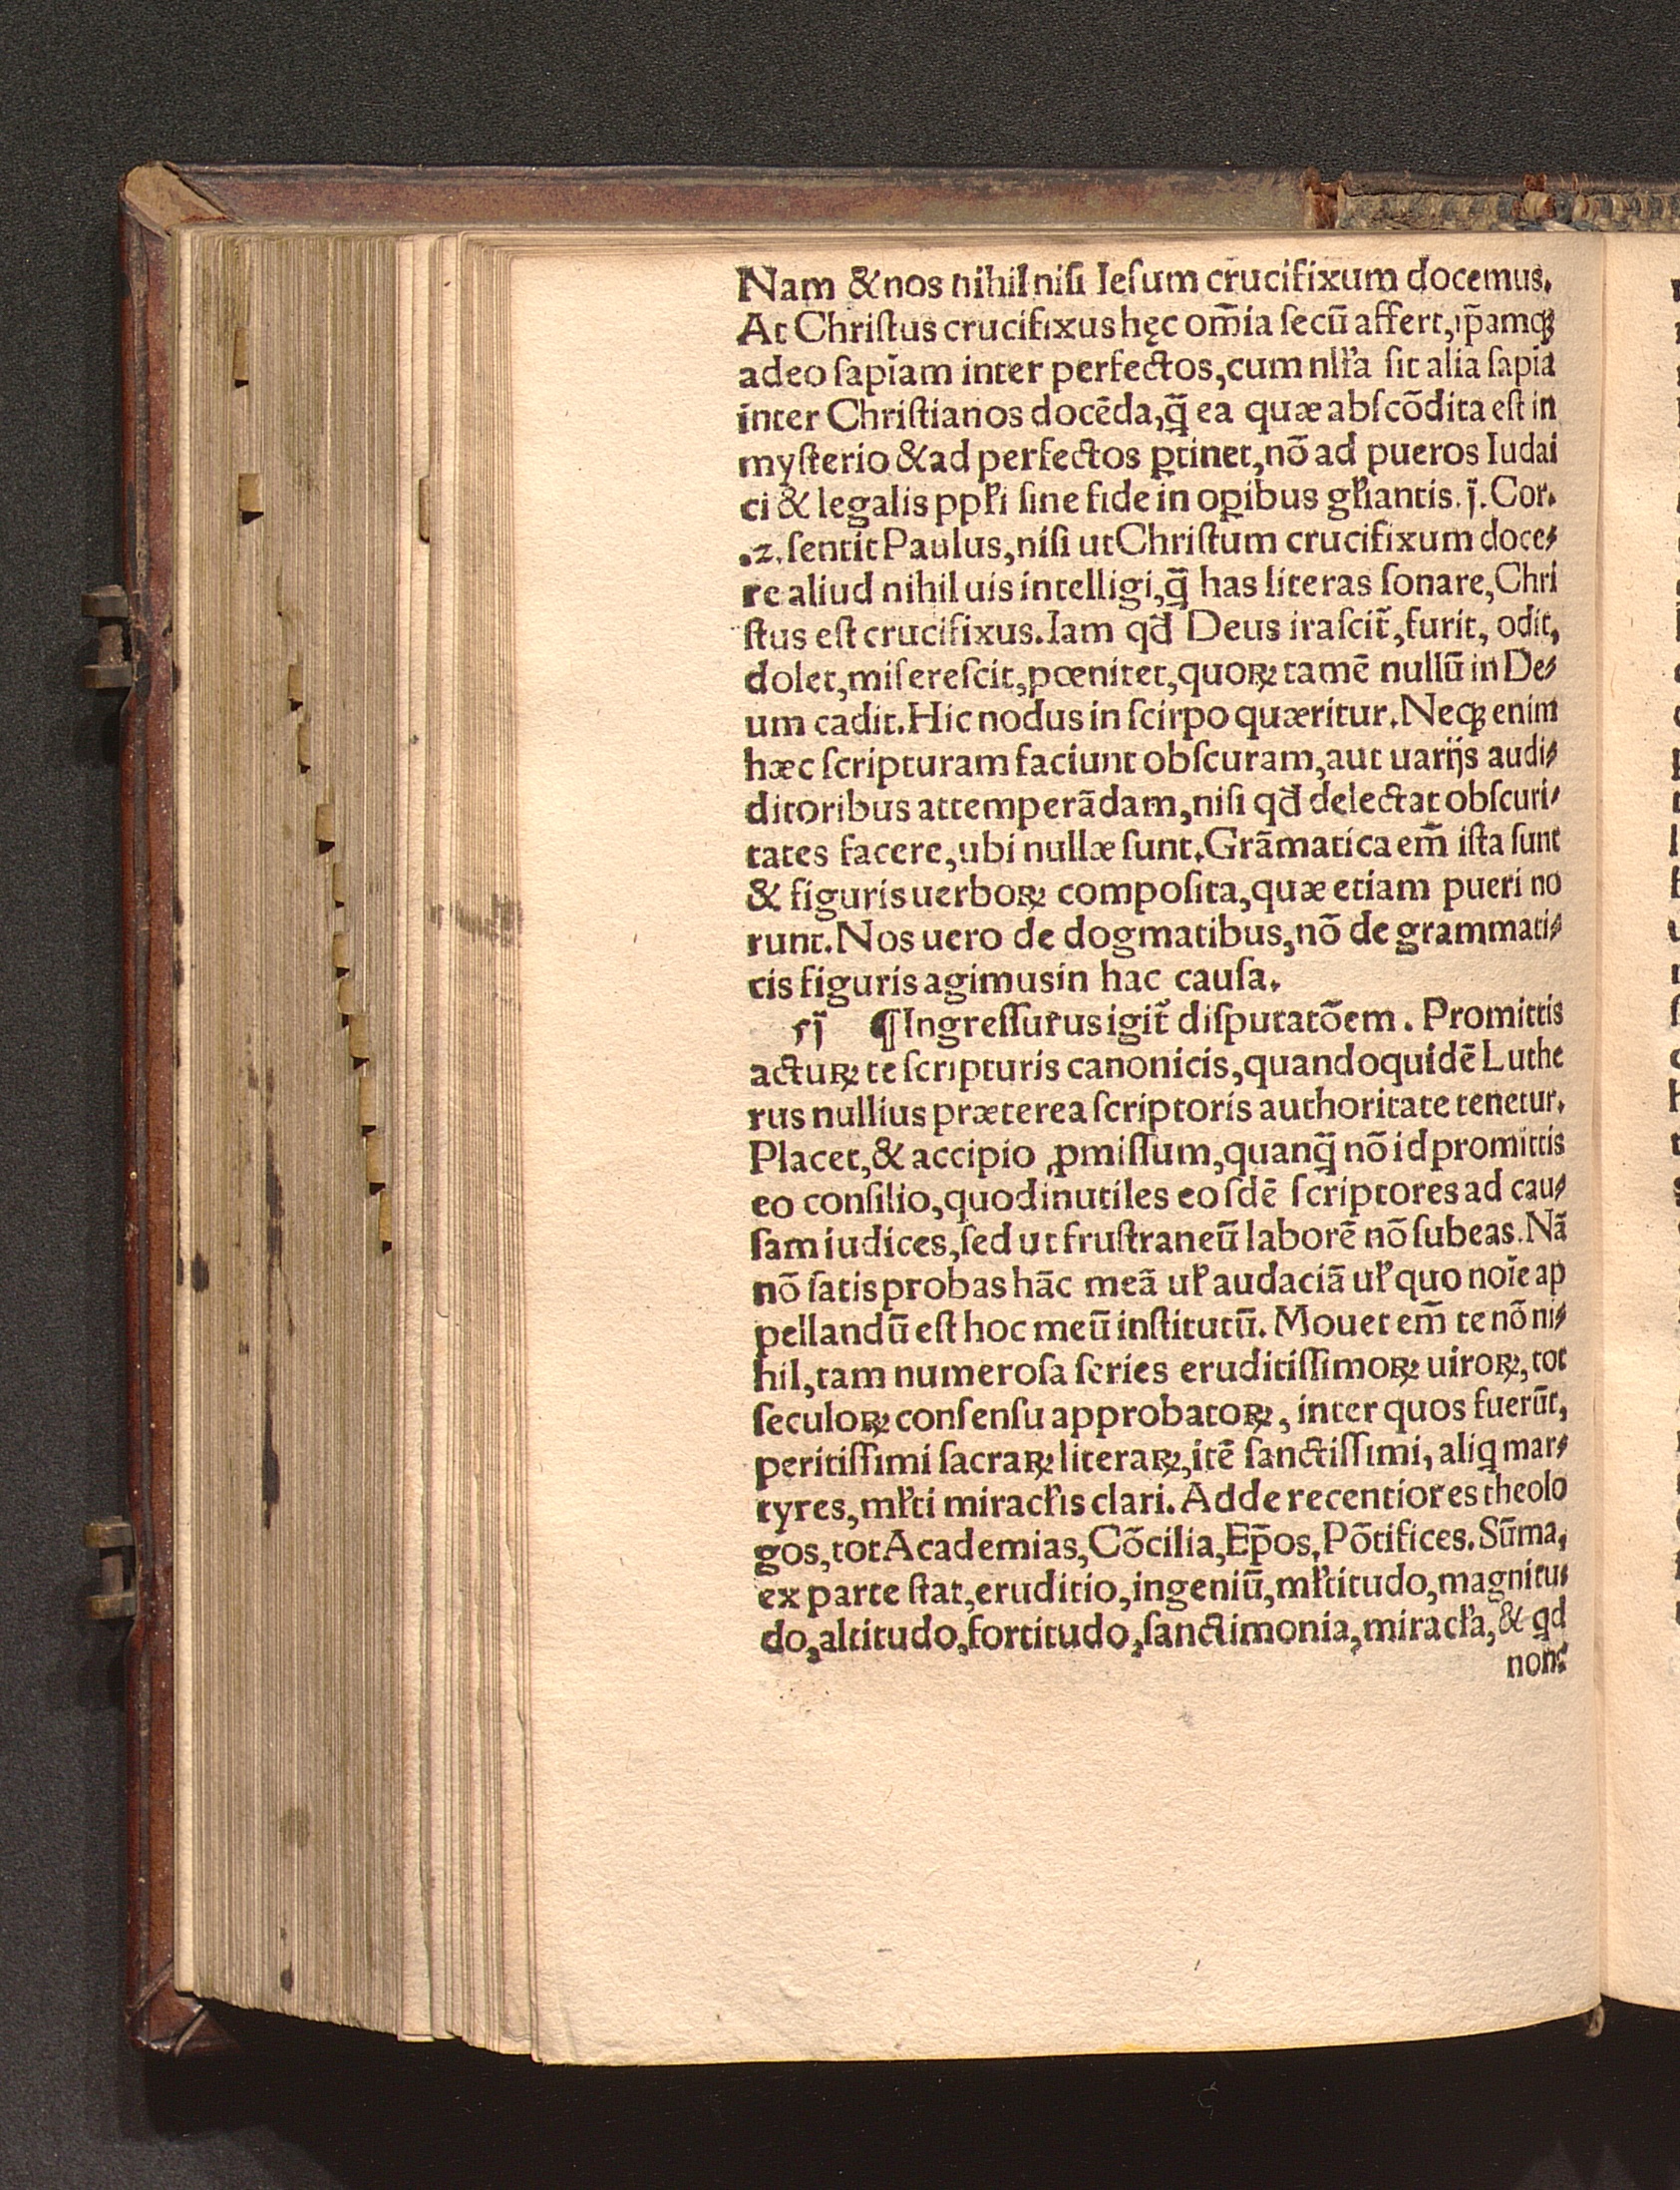 Nam & nos nihil niſi Ieſum crucifixum docemus.
At Chriſtus crucifixus hęc om̄ia ſecū affert, ip̄amqꝫ
adeo ſapīam inter perfectos, cum nłła ſit alia ſapīa
inter Chriſtianos docēda, q̄ ea quæ abſcōdita eſt in
myſterio & ad perfectos ꝑtinet, nō ad pueros Iudai
ci & legalis ppłi ſine fide in oꝑibus głiantis. j. Cor.
.2. ſentit Paulus, niſi ut Chriſtum crucifixum doce⸗
re aliud nihil uis intelligi, q̄ has literas ſonare, Chri
ſtus eſt crucifixus. Iam qđ Deus iraſcit̃, furit, odit,
dolet, miſereſcit, pœnitet, quoꝝ tamē nullū in De⸗
um cadit. Hic nodus in ſcirpo quæritur. Neqꝫ enim
hæc ſcripturam faciunt obſcuram, aut uarijs audi⸗
ditoribus attemperādam, niſi qđ delectat obſcuri⸗
tates facere, ubi nullæ ſunt. Grāmatica em̄ iſta ſunt
& figuris uerboꝝ compoſita, quæ etiam pueri no
runt. Nos uero de dogmatibus, nō de grammati⸗
cis figuris agimus in hac cauſa.
¶ Ingreſſurus igit̃ diſputatōem. Promittis
actuꝝ te ſcripturis canonicis, quandoquidē Luthe
rus nullius præterea ſcriptoris authoritate tenetur.
Placet, & accipio ꝓmiſſum, quanq̄ nō id promittis
eo conſilio, quod inutiles eoſdē ſcriptores ad cau⸗
ſam iudices, ſed ut fruſtraneū laborē nō ſubeas. Nā
nō ſatis probas hāc meā uł audaciā uł quo noīe ap
pellandū eſt hoc meū inſtitutū. Mouet em̄ te nō ni⸗
hil, tam numeroſa ſeries eruditiſſimoꝝ uiroꝝ, tot
ſeculoꝝ conſenſu approbatoꝝ, inter quos fuerūt,
peritiſſimi ſacraꝝ literaꝝ, itē ſanctiſſimi, aliq mar⸗
tyres, młti miracłis clari. Adde recentiores theolo
gos, tot Academias, Cōcilia, Ep̄os, Pōtifices. Sūma,
ex parte ſtat, eruditio, ingeniū, młtitudo, magnitu⸗
do, altitudo, fortitudo, ſanctimonia, miracła, & qd
non?